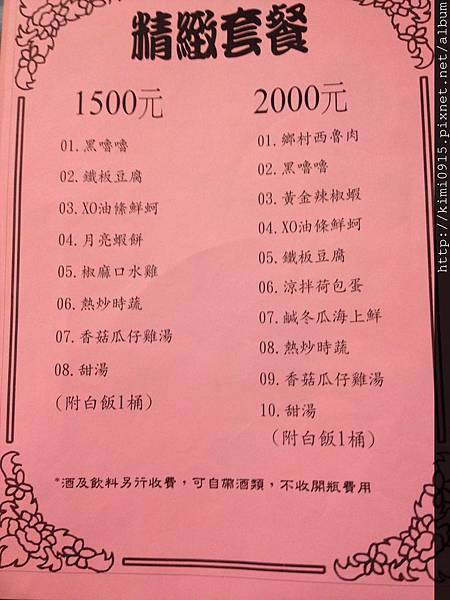 精緻套餐
1500元
01. 黑嚕嚕
02. 鐵板豆腐
03. XO油條鮮蚵
04. 月亮蝦餅
05. 椒麻口水雞
06. 熱炒時蔬
07. 香菇瓜仔雞湯
08. 甜湯
(附白飯1桶)
2000元
01. 鄉村西魯肉
02. 黑嚕嚕
03. 黃金辣椒蝦
04. XO油條鮮蚵
05. 鐵板豆腐
06. 涼拌荷包蛋
07. 鹹冬瓜海上鮮
08. 熱炒時蔬
09. 香菇瓜仔雞湯
10. 甜湯
(附白飯1桶)
*酒及飲料另行收費，可自備酒類，不收開瓶費用
http://kimi0915.pixnet.net/album